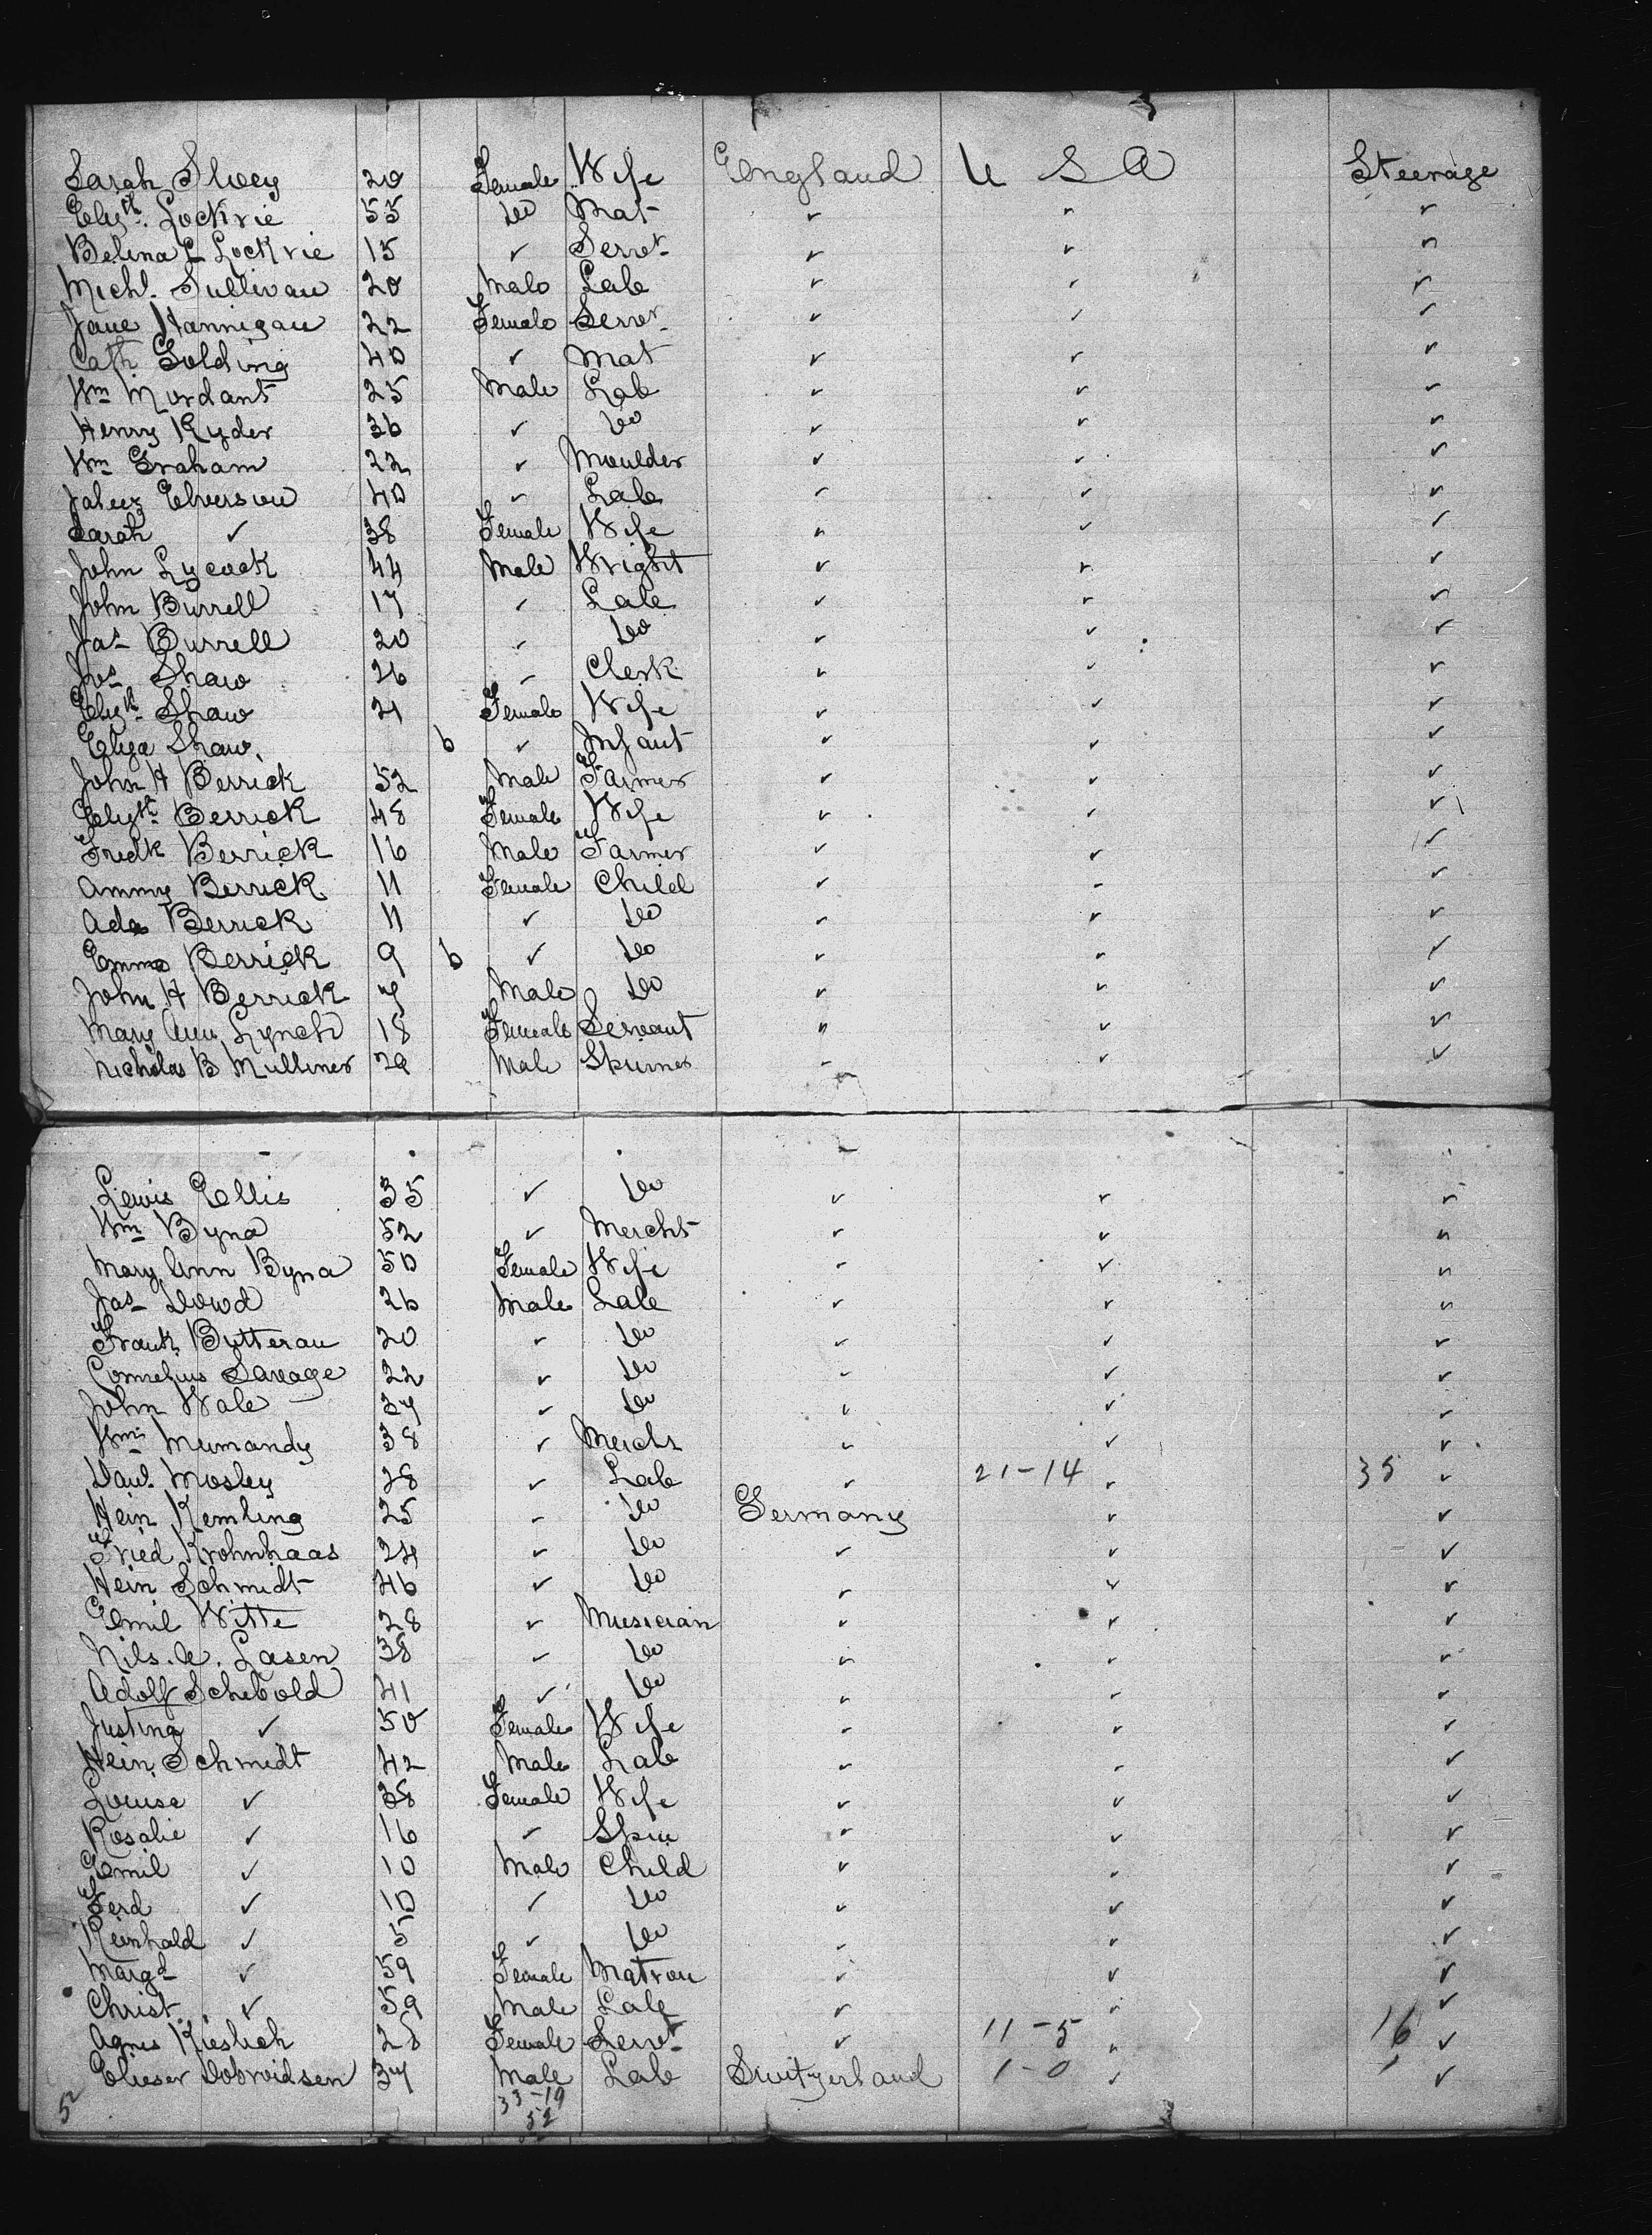 Sarah Slvey 20 Female Wife England U S A Steerage
Elizth. Lockrie 55 Do Mat ✓ ✓ ✓
Belina E Lockrie 15 ✓ Servt ✓ ✓ ✓
Michl. Sullivan 20 Male Lab ✓ ✓ ✓
Jane Hannigan 22 Female Servt ✓ ✓ ✓
Cath Golding 40 ✓ Mat ✓ ✓ ✓
Wm Mordant 25 Male Lab ✓ ✓ ✓
Henry Ryder 36 ✓ Do ✓ ✓ ✓
Wm Graham 22 ✓ Moulder ✓ ✓ ✓
Jabez Elverson 40 ✓ Lab ✓ ✓ ✓
Sarah ✓ 38 Female Wife ✓ ✓ ✓
John Lycock 44 Male Wright ✓ ✓ ✓
John Burrell 17 ✓ Lab ✓ ✓ ✓
Jas Burrell 20 ✓ Do ✓ ✓ ✓
Jos Shaw 26 ✓ Clerk ✓ ✓ ✓
Elizth Shaw 21 Female Wife ✓ ✓ ✓
Eliza Shaw 6 ✓ Infant ✓ ✓ ✓
John H Berrick 52 Male Farmer ✓ ✓ ✓
Elizth Berrick 48 Female Wife ✓ ✓ ✓
Fredk Berrick 16 Male Farmer ✓ ✓ ✓
Ammy Berrick 11 Female Child ✓ ✓ ✓
Ada Berrick 11 ✓ Do ✓ ✓ ✓
Emma Berrick 9 6 ✓ Do ✓ ✓ ✓
John H Berrick 7 Male Do ✓ ✓ ✓
Mary Ann Lynch 18 Female Servant ✓ ✓ ✓
Nicholas B Mulliner 29 Male Skinner ✓ ✓ ✓
Lewis Ellis 35 ✓ Do ✓ ✓ ✓
Wm Byna 52 ✓ Mercht ✓ ✓ ✓
Mary Ann Byna 50 Female Wife ✓ ✓ ✓
Jas Dowd 26 Male Lab ✓ ✓ ✓
Frank Butterau 20 ✓ Do ✓ ✓ ✓
Cornelius Savage 22 ✓ Do ✓ ✓ ✓
John Wale 37 ✓ Do ✓ ✓ ✓
Wm Mumandy 38 ✓ Mercht ✓ ✓ ✓
Danl. Mosley 28 ✓ Lab ✓ 21-14 ✓ 35 ✓
Hein Kemling 25 ✓ Do Germany ✓ ✓
Fried Krohnhaas 24 ✓ Do ✓ ✓ ✓
Hein Schmidt 46 ✓ Do ✓ ✓ ✓
Emil Witte 28 ✓ Musician ✓ ✓ ✓
Nils. A. Lasen 38 ✓ Do ✓ ✓ ✓
Adolf Schebold 41 ✓ Do ✓ ✓ ✓
Justina ✓ 50 Female Wife ✓ ✓ ✓
Hein Schmidt 42 Male Lab ✓ ✓ ✓
Louisa ✓ 38 Female Wife ✓ ✓ ✓
Rosalie ✓ 16 ✓ Spin ✓ ✓ ✓
Emil ✓ 10 Male Child ✓ ✓ ✓
Ferd ✓ 10 ✓ Do ✓ ✓ ✓
Reinhald ✓ 5 ✓ Do ✓ ✓ ✓
Margd ✓ 59 Female Matron ✓ ✓ ✓
Christ. ✓ 59 Male Lab ✓ ✓ ✓
Agnes Kieslich 28 Female Servt ✓ 11-5 ✓ 16 ✓
Elieser Dobroidsen 37 Male Lab Switzerland 1-0 ✓ 1 ✓
52 33-19
52